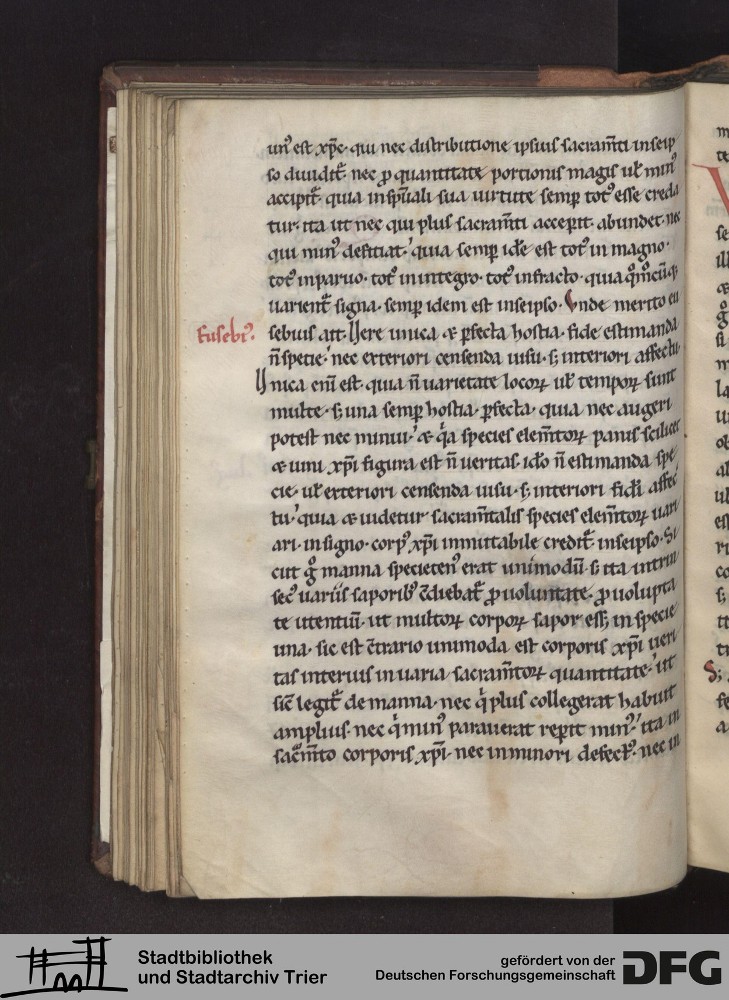 un᷒ est xp̄c· qui nec distributione ipsius sacram̄ti inseip
so diuidit᷑· nec ꝓ quantitate portionis magis ul̄ min᷒
accipit᷑· quia in sp̄uali sua uirtute semꝑ tot᷒ esse creda
tur· ita ut nec qui plus sacram̄ti acceꝑit· abundet· nec
qui min᷒ deficiat· quia semꝑ idē est tot᷒ in magno·
tot᷒ inparuo· tot᷒ in integro· tot᷒ infracto· quia
uarient᷑ signa· semꝑ idem est inseipso· Unde merito eu
Eusebi᷒.
sebius ait· Uere unica & ꝑfecta hostia· fide estimanda
n̄ specie· nec exteriori censenda uisu· s; interiori affectu·
Unica eni᷑ est· quia n̄ uarietate locoꝝ ul̄ tempoꝝ sunt
multe· s; una semꝑ hostia· ꝑfecta· quia nec augeri
potest nec minui· & qͣa species elem̄toꝝ panis scilicet
& uini xp̄i figura est n̄ ueritas· ido n̄ estimanda spe
cie· ul̄ exteriori censenda uisu· s; interiori fidei affec
tu· quia & uidetur sacram̄talis species elem̄toꝝ uari
ari· in signo· corp᷒ xp̄i inmutabile credit᷑ inseipso· Si
cut gͦ manna specieten᷒ erat unimodū· s; ita intrin
sec᷒ uariis saporib᷒ c̄diebat᷑ ꝓ uoluntate· ꝓ uolupta
te utentiū· ut multoꝝ corpoꝝ sapor ess& in specie
una· sic est c̄trario unimoda est corporis xp̄i ueri
tas interius in uaria sacram̄toꝝ quantitate· ut
sic̄ legit᷑ de manna· nec qͥ plus collegerat habuit
amplius· nec qͥ min᷒ parauerat reꝑit min᷒· ita in
sacͣm̄to corporis xp̄i· nec in minori defect᷒· nec in
Stadtbibliothek
und Stadtarchiv Trier
gefördert von der
Deutschen Forschungsgemeinschaft
DFG